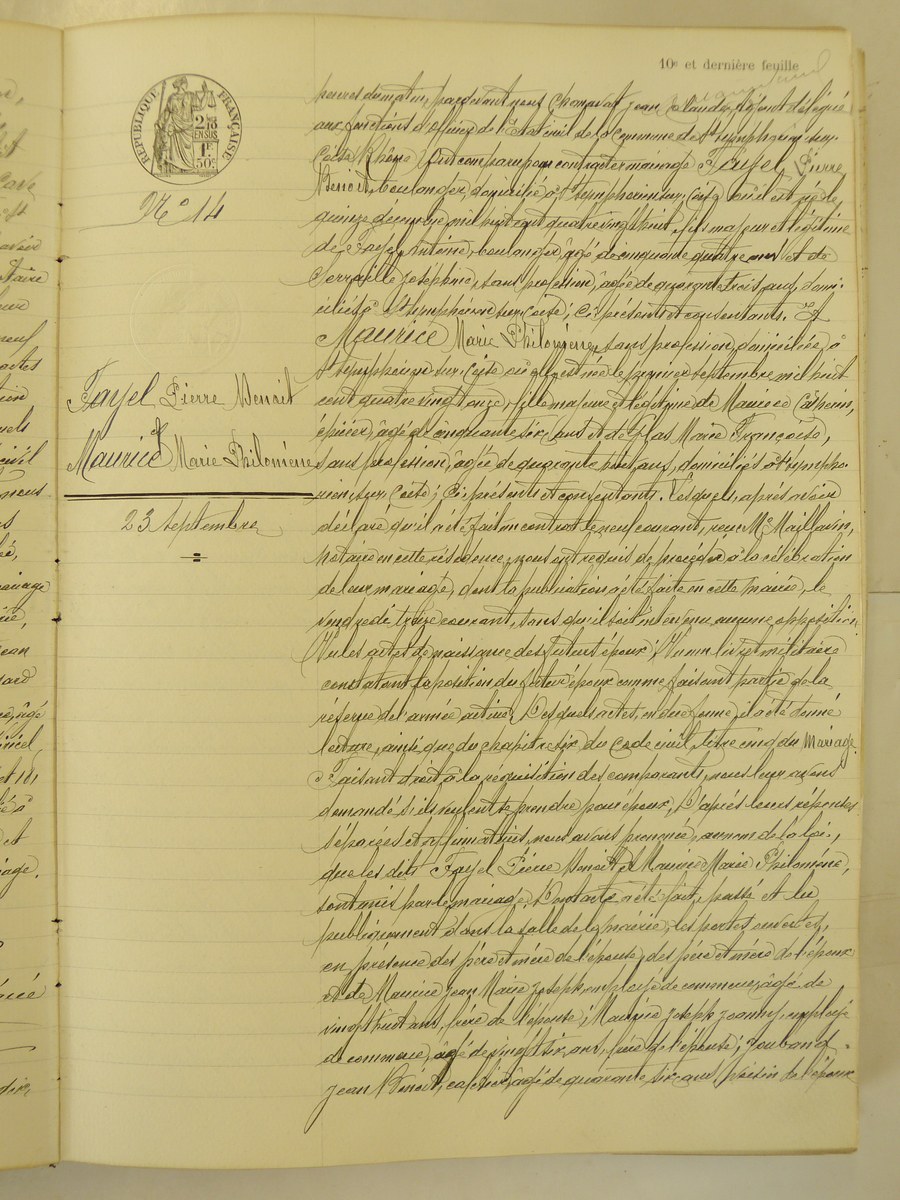 10e et dernière feuille
RÉPUBLIQUE FRANÇAISE
N° 14
Fayel Pierre Benoit
et
Maurice Marie Philomène
23 Septembre
heures du matin, par devant nous Charavat Jean Claude, adjoint délégué
aux fonctions d'officier de l'Etat civil de la commune de St Symphorien-sur-
Coise Rhône, ont comparu pour contracter mariage: Fayel, Pierre
Benoit, boulanger, domicilié à St Symphorien sur Coise où il est né le
quinze décembre mil huit cent quatre vingt huit, fils majeur et légitime
de Fayel Antoine, boulanger, âgé de cinquante quatre ans et de
Joséphine, sans profession, âgée de quarante trois ans, domi-
ciliés à St Symphorien sur Coise; ici présents et consentants. Et
Maurice Marie Philomène, sans profession, domiciliée à
St Symphorien sur Coise où elle est née le premier septembre mil huit
cent quatre vingt onze, fille majeure et légitime de Maurice Catherin,
épicier, âgé de cinquante six ans et de Glas Marie Françoise,
sans profession, âgée de quarante huit ans, domiciliés à St Sympho-
rien sur Coise; ici présents et consentants. Lesquels, après avoir
déclaré qu'il a été fait un contrat le neuf courant, reçu Me Maillavin,
notaire en cette résidence, nous ont requis de procéder à la célébration
de leur mariage, dont la publication a été faite en cette mairie, le
vendredi treize courant, sans qu'il soit intervenu aucune opposition.
Vu les actes de naissance des futurs époux; Vu un livret militaire
constatant la position du futur époux comme faisant partie de la
réserve de l'armée active. Desquels actes, en due forme, il a été donné
lecture, ainsi que du chapitre six du code civil, titre cinq du Mariage.
Faisant droit à la réquisition des comparants, nous leur avons
demandé s'ils veulent se prendre pour époux, D'après leurs réponses
séparées et affirmatives, nous avons prononcé, au nom de la loi,
que les dits Fayel Pierre Benoit et Maurice Marie Philomène,
sont unis par le mariage. Dont acte a été fait, passé et lu
publiquement dans la salle de la mairie, les portes ouvertes,
en présence des père et mère de l'épouse, des père et mère de l'époux
et de Maurice Jean Marie Joseph, employé de commerce, âgé de
vingt huit ans, frère de l'épouse; Maurice Joseph Jeanny, employé
de commerce, âgé de vingt six ans, frère de l'épouse; Jouband
Jean Benoit, cafetier, âgé de quarante six ans, voisin de l'époux